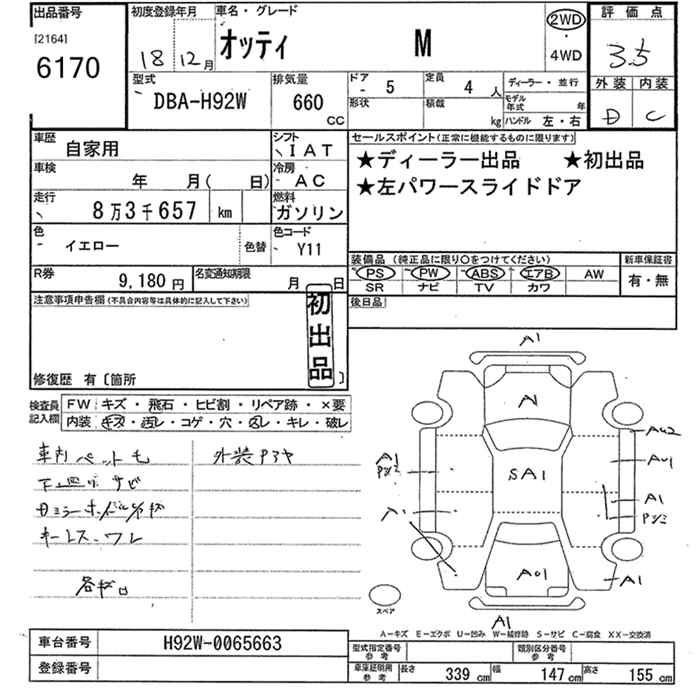 出品番号
[2164]
6170
初度登録年月
18 12月
車名・グレード
オッティ M
2WD
・
4WD
評価点
3.5
外装 内装
D C
型式
DBA-H92W
排気量
660
CC
ドア
- 5
定員
4 人
形状
積載
kg
ディーラー・並行
モデル年式 年
ハンドル 左・右
車歴
自家用
シフト
IAT
車検
年 月( 日)
冷房
AC
走行
8万3千657 km
燃料
ガソリン
色
イエロー
色替
色コード
Y11
R券
9,180円
名変通知期限
月 日
セールスポイント(正常に機能するものに限ります)
★ディーラー出品 ★初出品
★左パワースライドドア
装備品 (純正品に限り○をつけてください)
PS PW ABS エアB AW
SR ナビ TV カワ
新車保証書
有・無
後日品
注意事項申告欄(不具合内容等は具体的に記入して下さい)
初出品
修復歴 有〔箇所 〕
検査員記入欄
FW キズ・飛石・ヒビ割・リペア跡・×要
内装 キズ・汚レ・コゲ・穴・凹レ・キレ・破レ
車内ペット毛
外装アヤ
下廻りサビ
キーレス・ワレ
各サビ
A1
A
SA1
A01
A1
A1
A1
AU2
AU1
A1
A1
スペア
A-キズ E-エクボ U-凹み W-補修跡 S-サビ C-腐食 XX-交換済
車台番号
H92W-0065663
登録番号
型式指定番号
参考
類別区分番号
参考
車庫証明用
参考
長さ 339 cm
幅 147 cm
高さ 155 cm